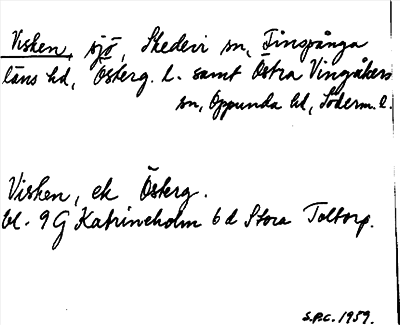 Visken, sjö, Skedevi sn, Finspånga
läns hd, Österg. l. samt Östra Vingåkers
sn, Oppunda hd, Söderm. l.
Visken, ek Österg.
bl. 9 G Katrineholm 6 d Stora Toltorp.
S.P.C. 1959.